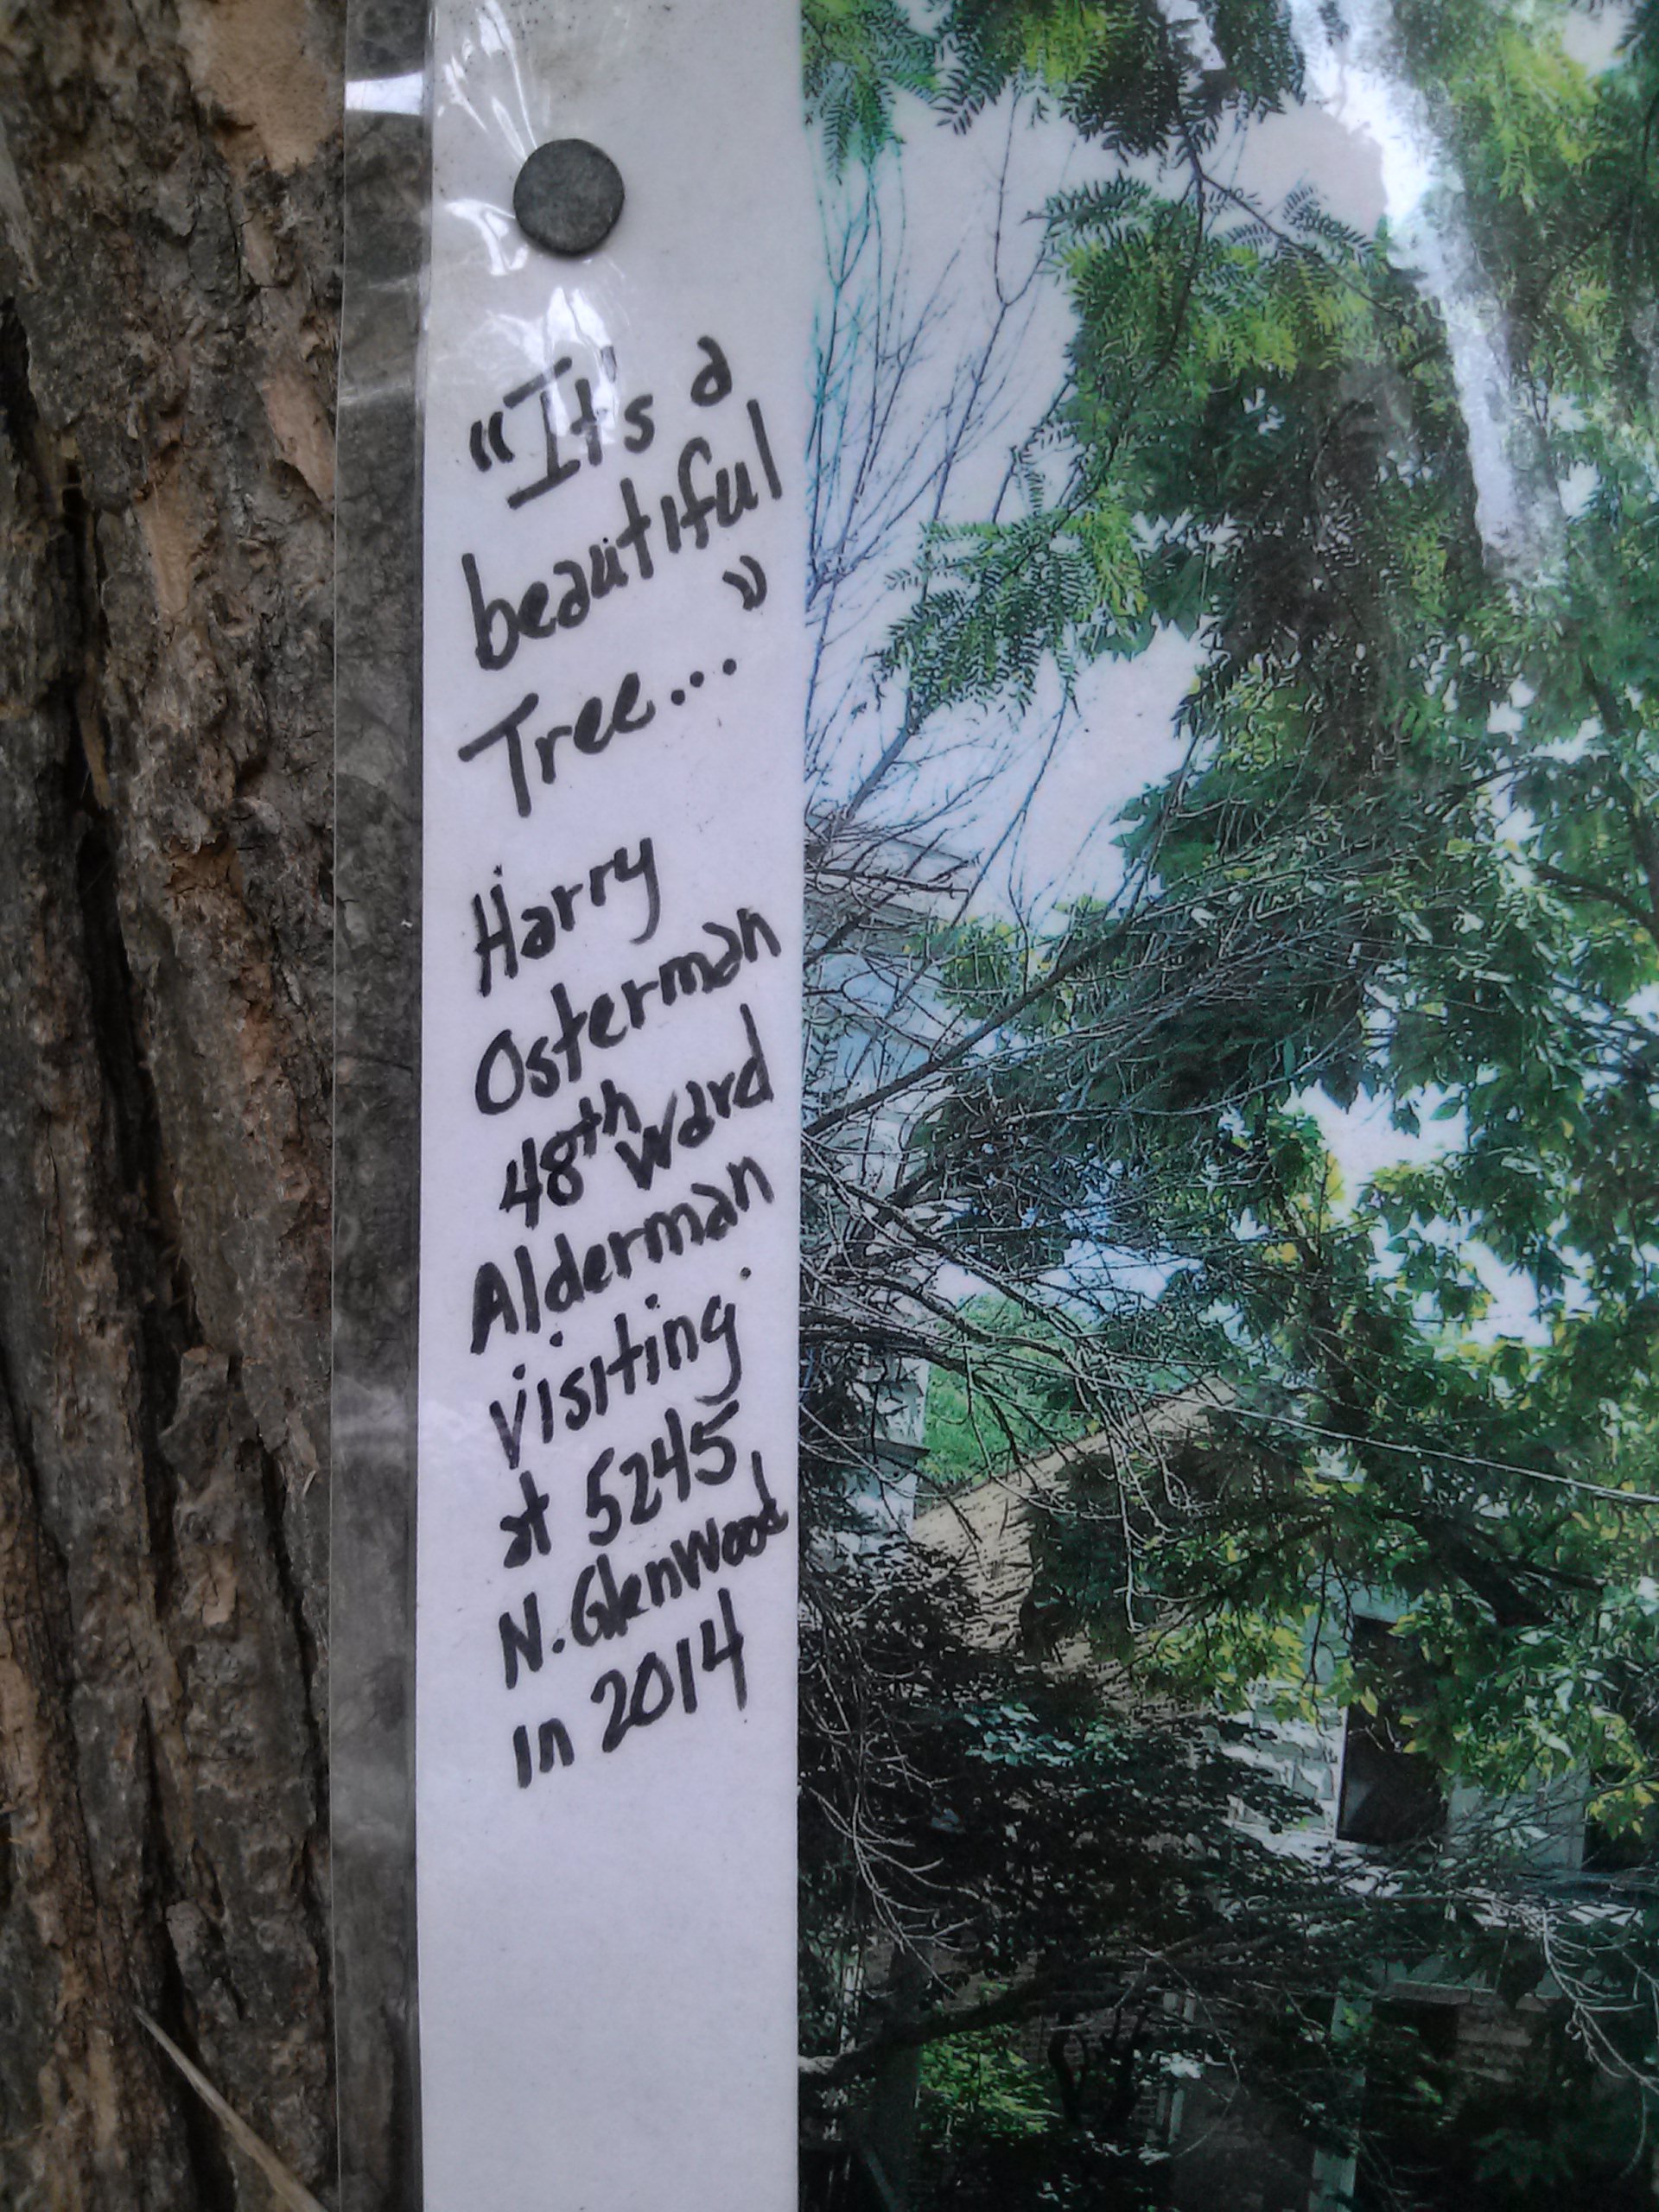 "It's a
beautiful
Tree..."
Harry
Osterman
48th Ward
Alderman
visiting
at 5245
N. Glenwood
in 2014